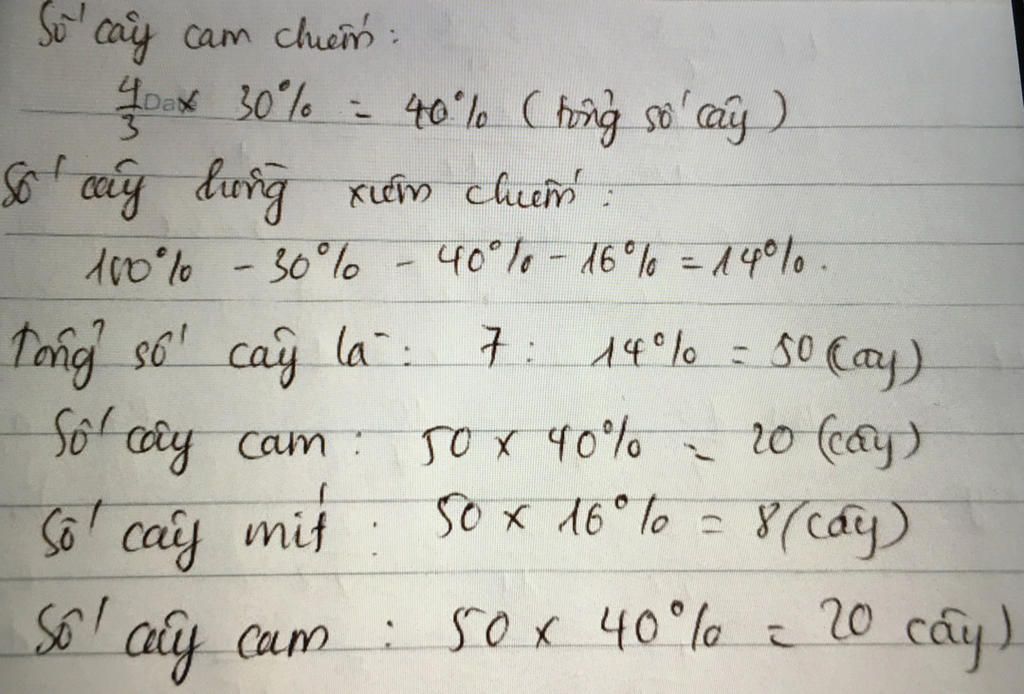 Số cây cam chiếm:
4/3 x 30% = 40% (tổng số cây)
Số cây hồng xiêm chiếm:
100% - 30% - 40% - 16% = 14%.
Tổng số cây là: 7 : 14% = 50 (cây)
Số cây cam: 50 x 40% = 20 (cây)
Số cây mít: 50 x 16% = 8 (cây)
Số cây cam: 50 x 40% = 20 cây)